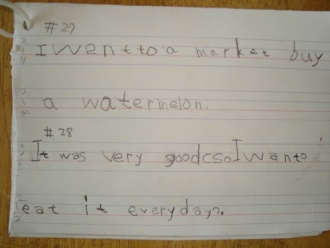 #27
I went to a market buy
a watermelon.
#28
It was very good so I want
eat it everyday.